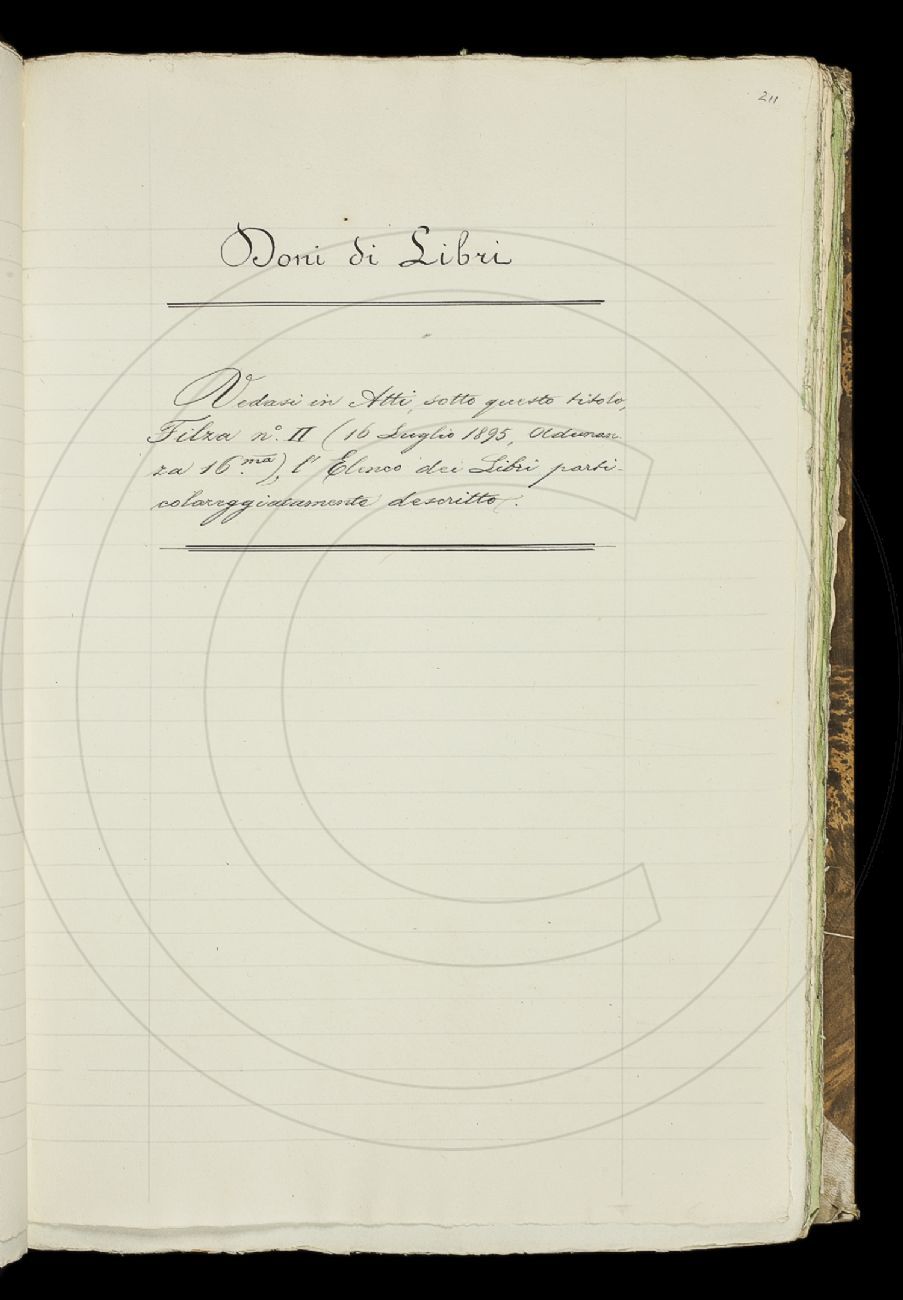 211
Doni di Libri
Vedasi in Atti, sotto questo titolo,
Filza n.º II (16 Luglio 1895, Adunan-
za 16.ma), l' Elenco dei Libri parti-
colareggiatamente descritto.